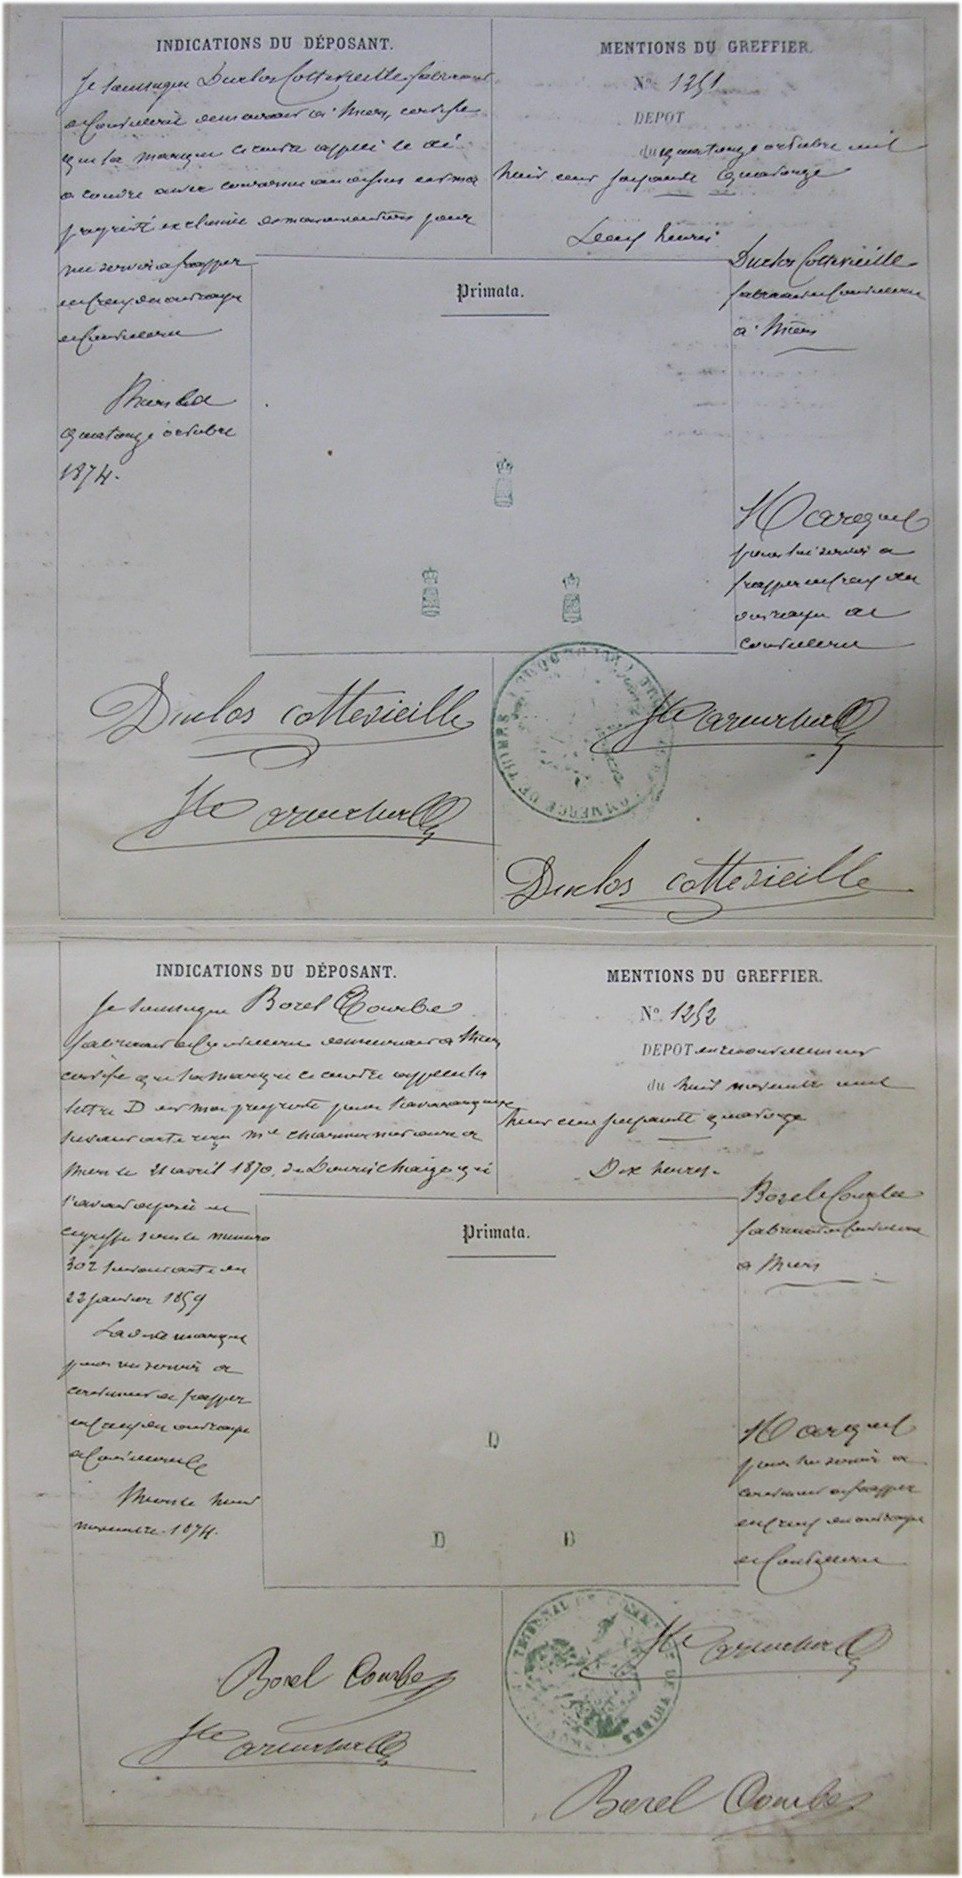 INDICATIONS DU DÉPOSANT.
Je soussigné Duclos Cottevieille fabricant
de Coutellerie demeurant à Thiers, certifie
que la marque ci contre appelé le dé
a coudre avec couronne au dessus est ma
propriété exclusive
me servir a frapper
en creux des ouvrages
de Coutellerie
Thiers le
quatorze octobre
1874.
MENTIONS DU GREFFIER.
No 1251
DEPOT
du quatorze octobre mil
huit cent soixante Quatorze
heures
Duclos Cottevieille
fabricant de Coutellerie
à Thiers
Primata.
Marque
pour lui servir a
frapper en creux des
ouvrages de
coutellerie
Duclos cottevieille
Duclos cottevieille
INDICATIONS DU DÉPOSANT.
Je soussigné Borel Courbe
fabricant de Coutellerie demeurant à Thiers
certifie que la marque ci contre appelée la
lettre D est ma propriété pour l'avoir acquise
suivant acte reçu Me notaire a
Thiers le 21 avril 1870, de qui
l'avait déposée au
greffe sous le numéro
302 suivant acte du
22 janvier 1859
La dite marque
pour me servir a
continuer de frapper
en creux des ouvrages
de Coutellerie
Thiers le huit
novembre 1874.
MENTIONS DU GREFFIER.
No 1252
DEPOT en renouvellement
du huit novembre mil
huit cent soixante quatorze
Dix heures.
Borel Courbe
fabricant de Coutellerie
à Thiers
Primata.
D
D D
Marque
pour lui servir a
continuer de frapper
en creux des ouvrages
de Coutellerie
TRIBUNAL DE COMMERCE DE THIERS
Borel Courbe
Borel Courbe